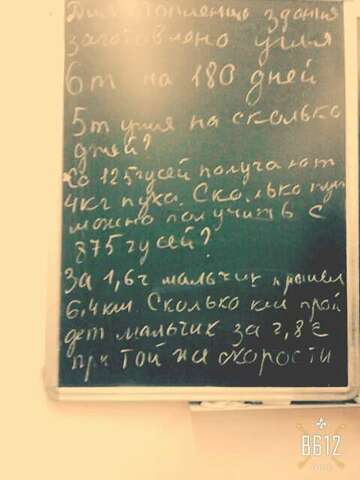 Для отопления здания
заготовлено угля
6т на 180 дней
5т угля на сколько
дней?
Со 125 гусей получают
4кг пуха. Сколько пуха
можно получить с
875 гусей?
За 1,6 ч мальчик прошел
6,4 км. Сколько км прой
дет мальчик за 2,8 ч
при той же скорости
B612